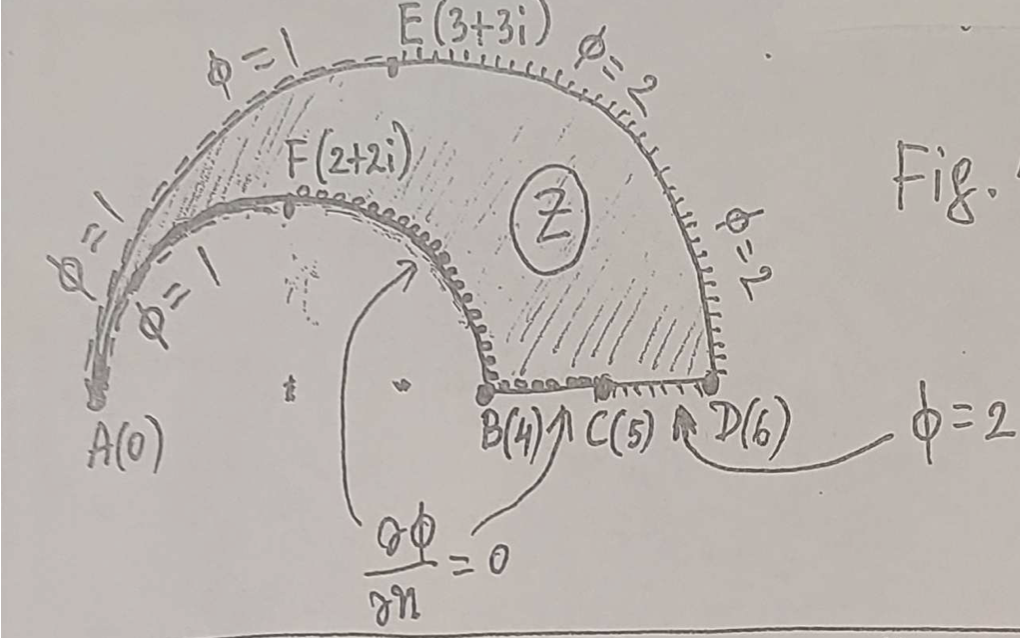 E(3+3i)
ϕ=1
ϕ=2
F(2+2i)
Fig.
Z
ϕ=1
ϕ=2
ϕ=1
A(0)
B(4)
C(5)
D(6)
ϕ=2
∂ϕ/∂n=0